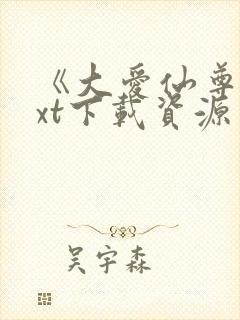 《大爱仙尊
xt下载资源
吴宇森